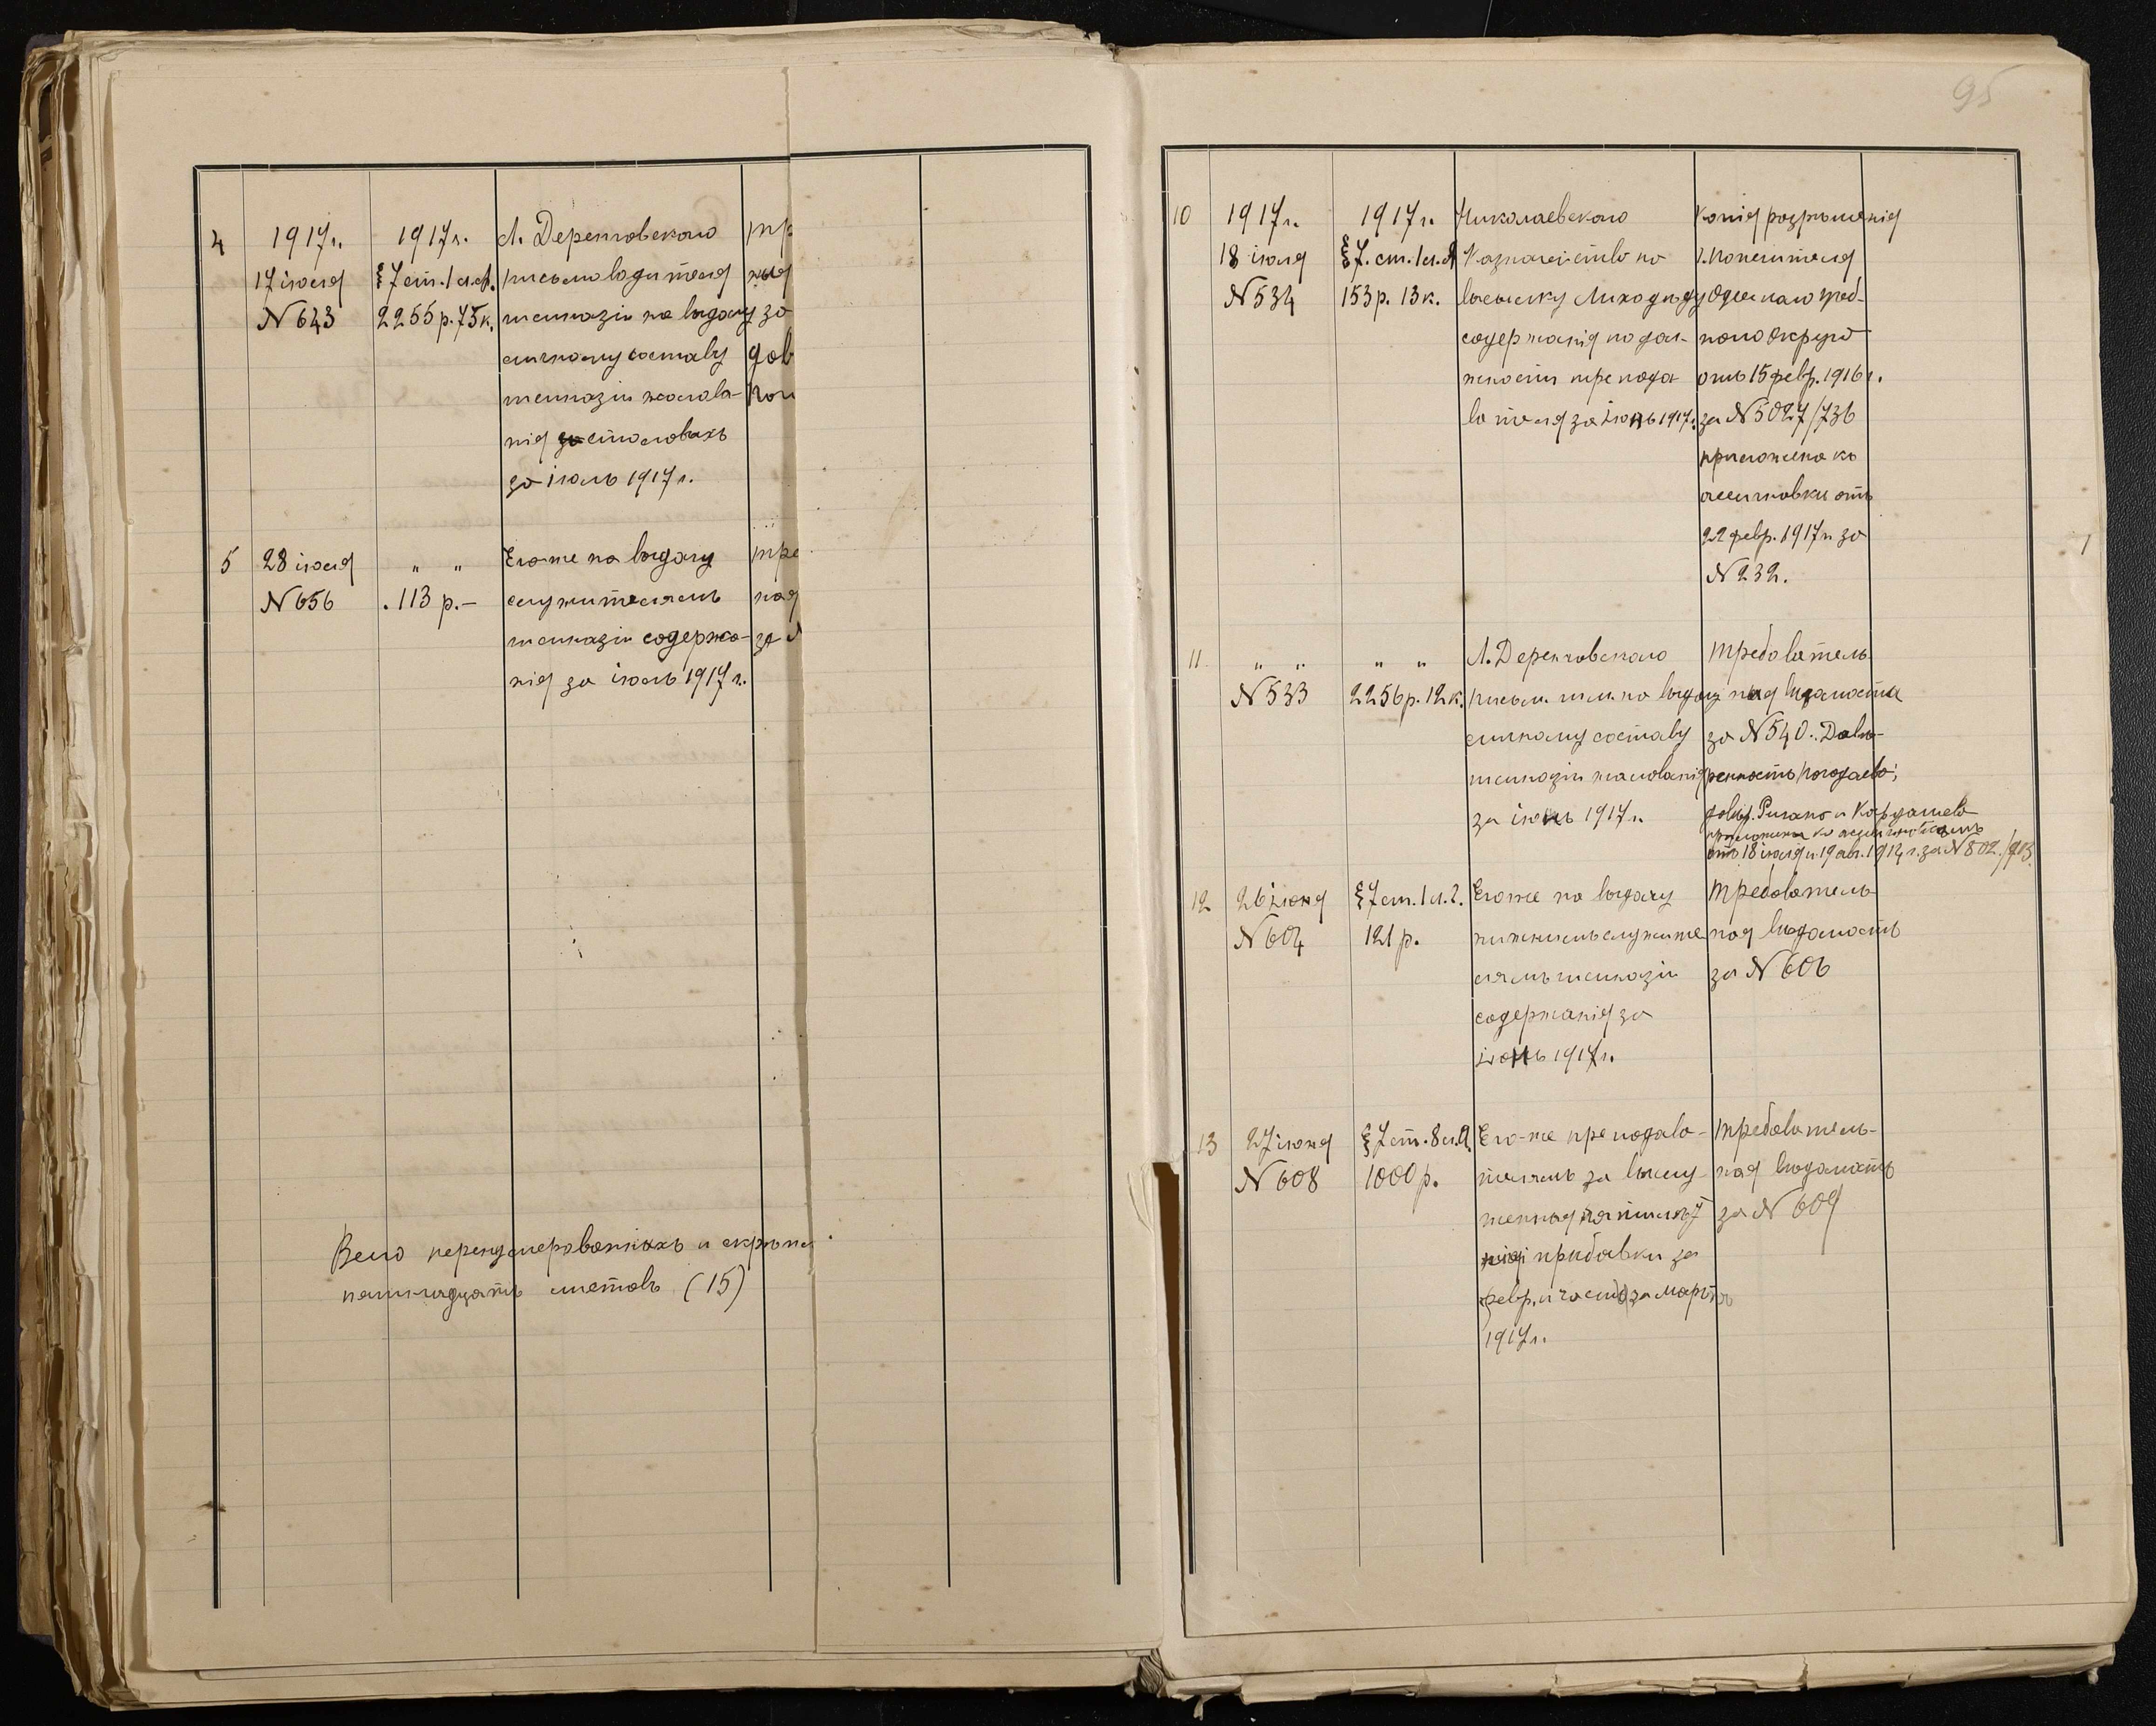 4
1917г.
17 іюля
№ 643
1917г.
§7 ст. 1 л. А.
2255 р. 75 к.
Л. Деренговскаго
письмоводителя
гимназіи на выдачу
личному составу
гимназіи жалова-
нія
за іюль 1917 г.
за
дов
5
28 іюля
№ 656
" "
113 р. –
Его-же на выдачу
служителямъ
гимназіи содержа-
нія за іюль 1917 г.
тре
ная
за №
Всего перенумерованныхъ и скрѣплен
пятнадцать листовъ (15)
95
10
1917г.
18 іюля
№ 534
1917г.
§7. ст. 1 л. А
153 р. 13 к.
Николаевскаго
Казначейства по
содержанія по дол-
жности препода-
вателя за іюнь 1917г.
Копія разрѣшенія
г. Попечителя
Одесскаго Учеб-
наго Округа
отъ 15 февр. 1916 г.
за № 5027/736
приложена къ
ассигновки отъ
22 февр. 1917 г. за
№ 232.
11
" "
№ 533
" "
2256 р. 12 к.
Л. Деренговскаго
письм. гим. на выдачу
личному составу
гимназіи жалованія
за іюнь 1917 г.
Требователь-
ная вѣдомость
за № 540. Довѣ-
ренность
довѣр. и
приложены къ ассигновкамъ
отъ 18 іюля и 19 авг. 1914 г. за № 802/913.
12
26 іюня
№ 604
§7 ст. 1 л. 2.
121 р.
Его-же на выдачу
нижнимъ служите-
лямъ гимназіи
содержанія за
іюнь 1917 г.
Требователь-
ная вѣдомость
за № 606
13
27 іюня
№ 608
§7 ст. 8 л. А.
1000 р.
Его-же преподава-
телямъ за выслу-
женныя пятилѣт-
нія прибавки за
февр. и часть за мартъ
1917 г.
Требователь-
ная вѣдомость
за № 609